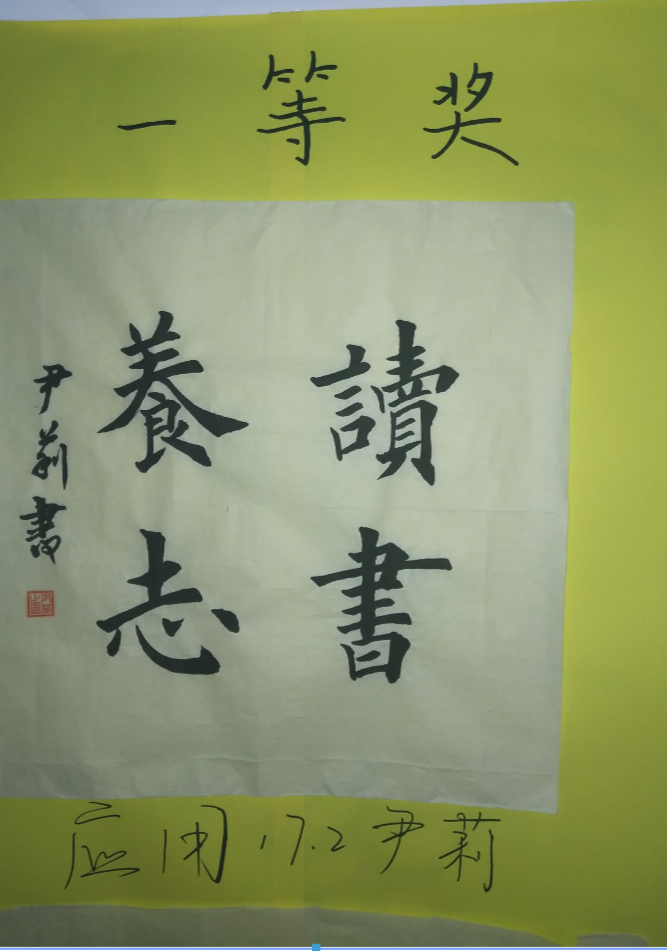 一等奖
讀書
養志
尹莉書
应用17.2尹莉